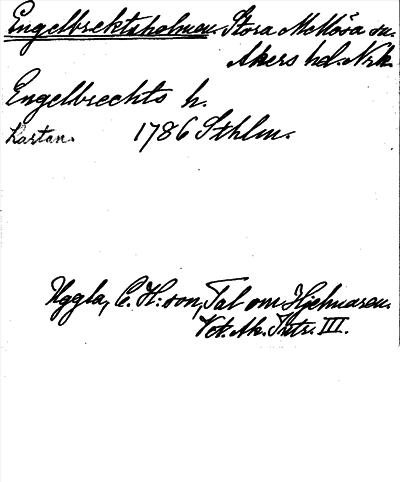 Engelbrektsholmen. Stora Mellösa sn.
Askers hd. Nrk.
Engelbrechts h.
Kartan. 1786 Sthlm.
Uggla, C. H:son, Tal om Hjelmaren.
Vet. Ak. Tntr. III.